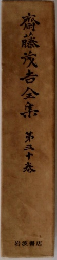 齋藤茂吉全集
第五十卷
岩波書店